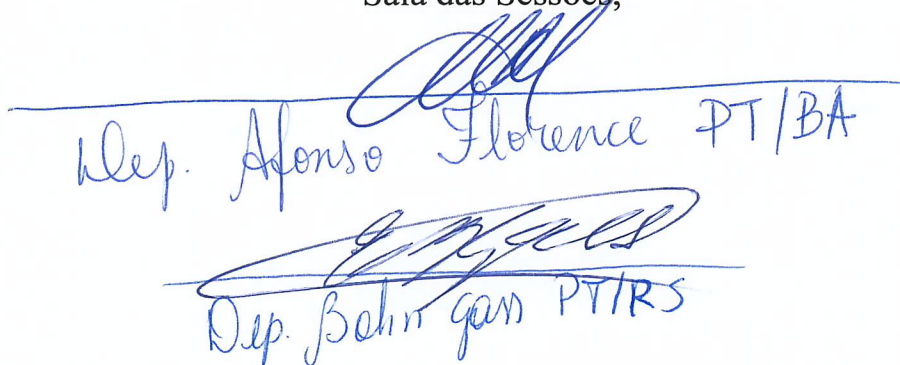 Sala das Sessões,
Dep. Afonso Florence PT/BA
Dep. Bohn Gass PT/RS